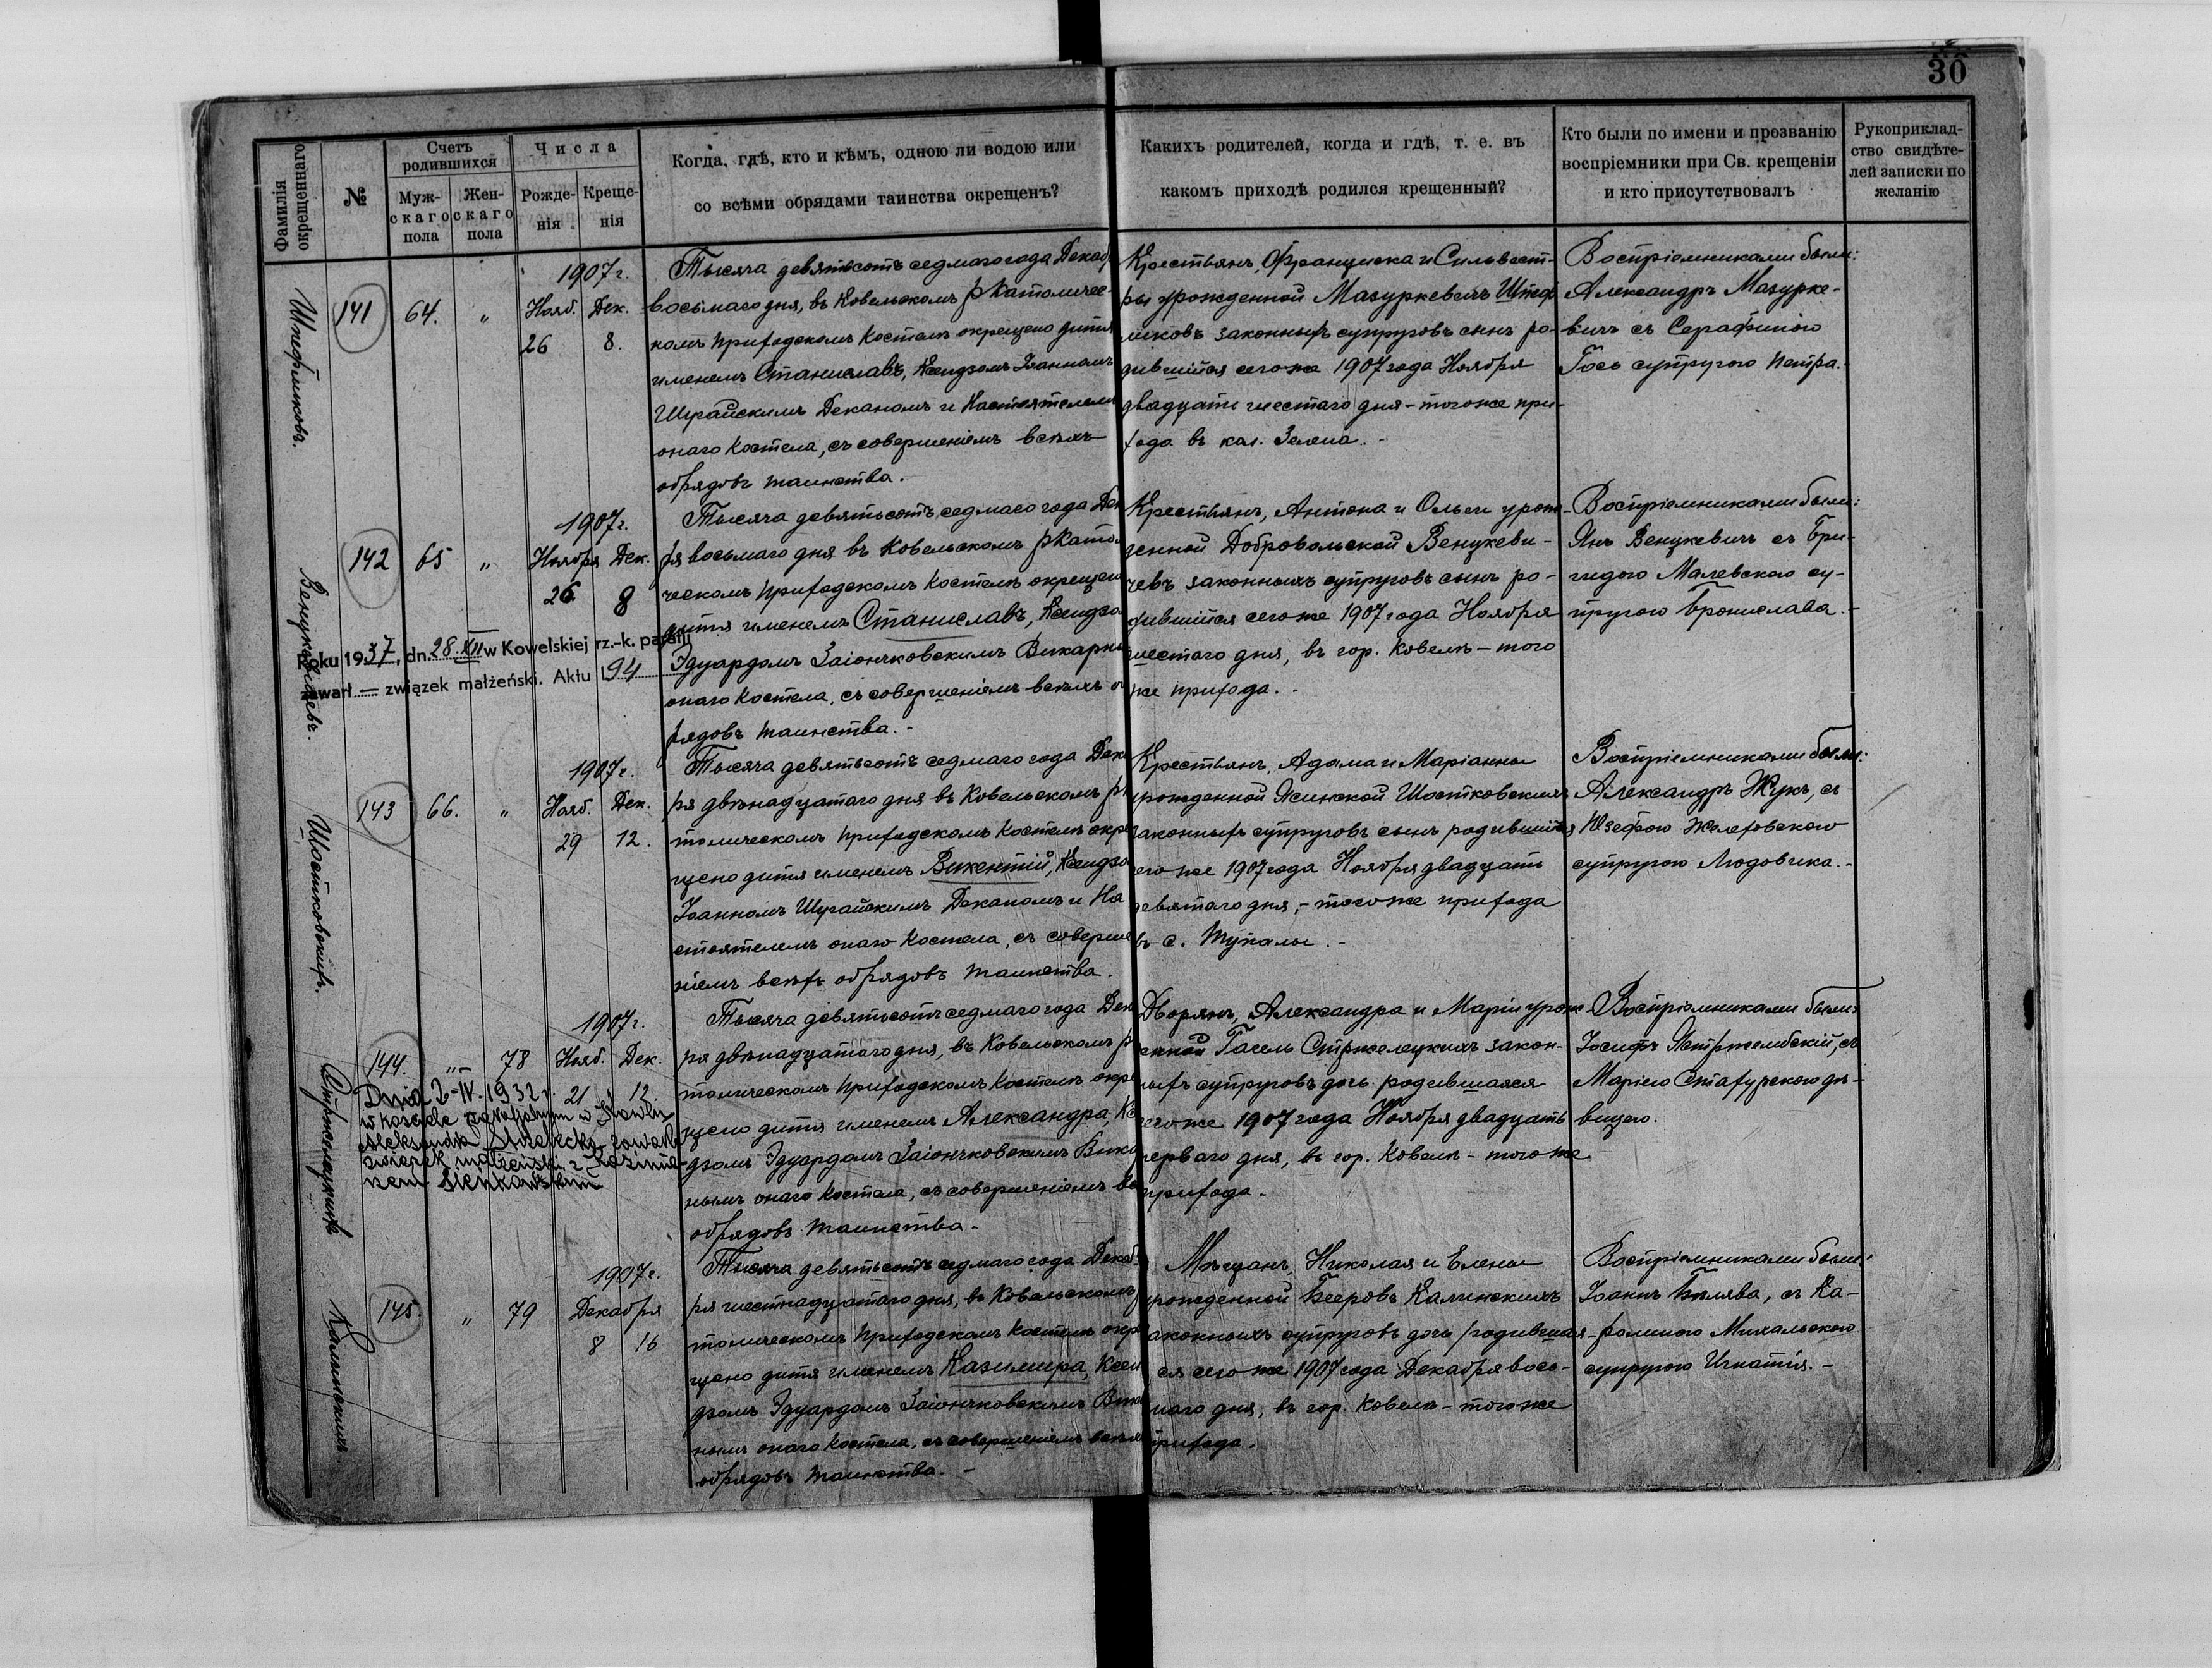 30
Фамилія окрещеннаго
№
Счетъ родившихся
Муж-скаго пола
Жен-скаго пола
Числа
Рожде-нія
Креще-нія
Когда, гдѣ, кто и кѣмъ, одною ли водою или
со всѣми обрядами таинства окрещенъ?
Какихъ родителей, когда и гдѣ, т. е. въ
какомъ приходѣ родился крещенный?
Кто были по имени и прозванію
воспріемники при Св. крещеніи
и кто присутствовалъ
Рукоприклад-
ство свидѣте-
лей записки по
желанію
141
64.
"
1907 г.
Нояб. Дек.
26 8.
Тысяча девятьсотъ седмаго года Декаб
восьмаго дня, въ Ковельскомъ рКатоличес-
комъ приходскомъ Костелѣ окрещено дитя
именемъ Станиславъ, Ксендзомъ Іоанномъ
Деканомъ и Настоятелемъ
онаго Костела, съ совершеніемъ всѣхъ
обрядовъ таинства.
Крестьянъ, Франциска и Сильвест-
ры урожденной Мазуркевичъ
законныхъ супруговъ сынъ ро-
дившійся сего же 1907 года Ноября
двадцать шестаго дня - того же при-
хода въ кол. Зелена. -
Воспріемниками были:
Александръ Мазурке-
вичъ съ Серафиною
Гось супругою Петра.
Венцкевичевъ.
142
65
"
1907 г.
Ноября Дек.
26. 8
Тысяча девятьсотъ седмаго года Дек
ря восьмаго дня въ Ковельскомъ рКато
ческомъ приходскомъ Костелѣ окрещен
дитя именемъ Станиславъ, Ксендзо
Эдуардомъ Заіончковскимъ Викарны
онаго Костела, съ совершеніемъ всѣхъ о
рядовъ таинства. -
Крестьянъ, Антона и Ольги урож-
денной Добровольской Венцкеви-
чевъ законныхъ супруговъ сынъ ро-
дившійся сего же 1907 года Ноября
шестаго дня, въ гор. Ковелѣ - того
же прихода. -
Воспріемниками были:
Янъ Венцкевичъ съ Бри-
гидою Малевскою су-
пругою Бронислава. -
Roku 1937, dn. 28. XII w Kowelskiej rz.-k. parafji
zawarł — związek małżeński. Aktu 194
Шостковскихъ.
143
66.
"
1907 г.
Нояб. Дек.
29 12.
Тысяча девятьсотъ седмаго года Дека
ря двѣнадцатаго дня въ Ковельскомъ рК
толическомъ приходскомъ Костелѣ окре
щено дитя именемъ Викентій, Ксендзо
Іоанномъ Деканомъ и На
стоятелемъ онаго Костела, съ соверше
ніемъ всѣхъ обрядовъ таинства.
Крестьянъ, Адама и Маріанны
урожденной Ясинской Шостковскихъ
законныхъ супруговъ сынъ родившійся
сего же 1907 года Ноября двадцать
девятаго дня, - того же прихода
въ с. Тупалы. -
Воспріемниками были:
Александръ Жукъ, съ
Юзефою Желеховскою
супругою Людовика. -
Стржелецкихъ
144.
"
78
1907 г.
Нояб. Дек.
21 12.
Тысяча девятьсотъ седмаго года Дека
ря двѣнадцатаго дня, въ Ковельскомъ р
толическомъ приходскомъ Костелѣ окре
щено дитя именемъ Александра, Кс
дзомъ Эдуардомъ Заіончковскимъ Вика
нымъ онаго Костела, съ совершеніемъ вс
обрядовъ таинства -
Дворянъ, Александра и Маріи урож-
енной Гасель Стржелецкихъ закон-
ныхъ супруговъ дочь родившаяся
сего же 1907 года Ноября двадцать
перваго дня, въ гор. Ковелѣ - того же
прихода -
Воспріемниками были:
Іосифъ Ястржембскій, съ
Маріею дѣ-
вицею.
Dnia 2-IV-1932 r.
w kościele parafjalnym w
Aleksandra Strzelecka zawarła
związek małżeński z Kazimie-
rzem Sieńkowskim
Калинскихъ.
145.
"
79
1907 г.
Декабря
8 16
Тысяча девятьсотъ седмаго года Декаб-
ря шестнадцатаго дня, въ Ковельскомъ
толическомъ приходскомъ Костелѣ окре
щено дитя именемъ Казимира, Ксен
дзомъ Эдуардомъ Заіончковскимъ Вика
нымъ онаго Костела, съ совершеніемъ всѣх
обрядовъ таинства. -
Мѣщанъ, Николая и Елены
урожденной Бееровъ Калинскихъ
законныхъ супруговъ дочь родившая-
ся сего же 1907 года Декабря вось-
маго дня, въ гор. Ковелѣ - того же
прихода.
Воспріемниками были:
Іоаннъ Билява, съ Ка-
ролиною Михальскою
супругою Игнатія. -